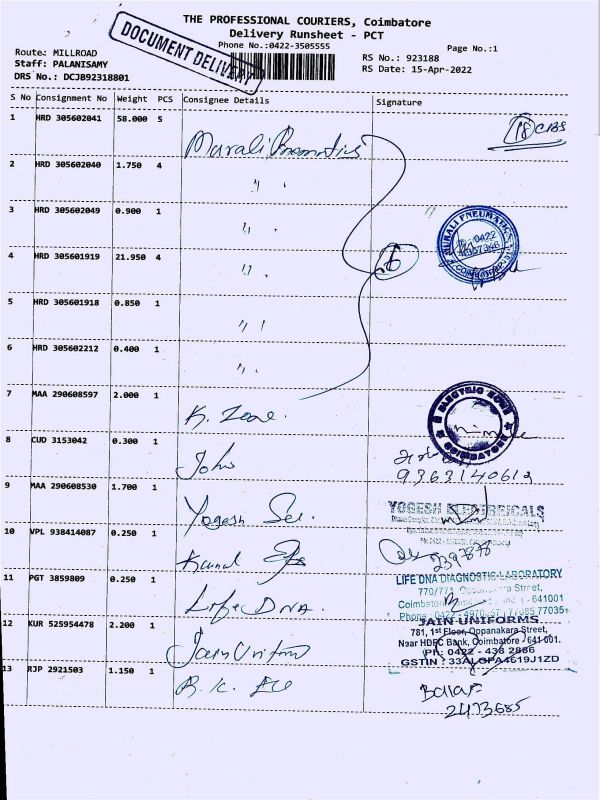 THE PROFESSIONAL COURIERS, Coimbatore
Delivery Runsheet - PCT
Phone No.:0422-3505555
DOCUMENT DELIVERY
Page No.:1
Route: MILLROAD
RS No.: 923188
Staff: PALANISAMY
RS Date: 15-Apr-2022
DRS No.: DCJB92318801
S No Consignment No Weight PCS Consignee Details Signature
1 HRD 305602041 58.000 5 Murali Pneumatics
18
2 HRD 305602040 1.750 4 "
3 HRD 305602049 0.900 1 "
MURALI PNEUMATICS
0422
COIMBATORE
4 HRD 305601919 21.950 4 "
6
5 HRD 305601918 0.850 1 "
6 HRD 305602212 0.400 1 "
7 MAA 290608597 2.000 1 K. Zone.
ELECTRIC
COIMBATORE
8 CUD 3153042 0.300 1 John
9363140612
9 MAA 290608530 1.700 1 Yogesh
YOGESH ELECTRICALS
10 VPL 938414087 0.250 1 Kamal
11 PGT 3859809 0.250 1 Life DNA.
LIFE DNA DIAGNOSTIC LABORATORY
770/771, Street,
Coimbatore 641001
Phone : 0422 - 77085 77035
12 KUR 525954478 2.200 1 Jain Uniform
JAIN UNIFORMS
781, 1st Floor, Oppanakara Street,
Near HDFC Bank, Coimbatore - 641 001.
Ph : 0422 - 438 2886
GSTIN : 33ALGPA4619J1ZD
13 RJP 2921503 1.150 1 R. K.
2473685